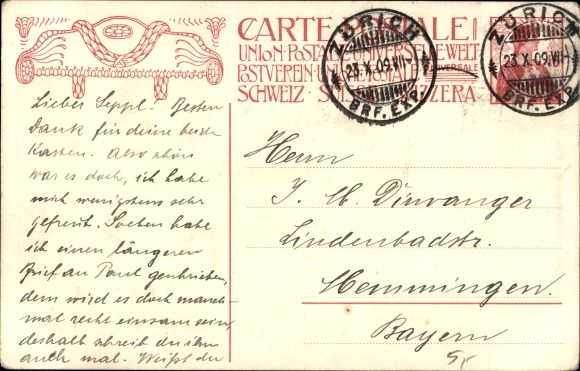 CARTE POSTALE
UNION POSTALE UNIVERSELLE WELT
POSTVEREIN UNIONE POSTALE UNIVERSALE
SCHWEIZ SVIZZERA
ZÜRICH
23.X.09.VII
BRF. EXP.
ZÜRICH
23.X.09.VII
BRF. EXP.
Lieber Seppl. Besten
Dank für deine beide
Karten. Also schön
war es doch, ich habe
mich wenigstens sehr
gefreut. Soeben habe
ich einen längeren
Brief an Paul geschrieben,
dem wird es doch manch-
mal recht einsam sein,
deshalb schreib du ihm
auch mal. Weißt du
Herrn
J. M. Dirwanger
Lindenbadstr.
Memmingen.
Bayern